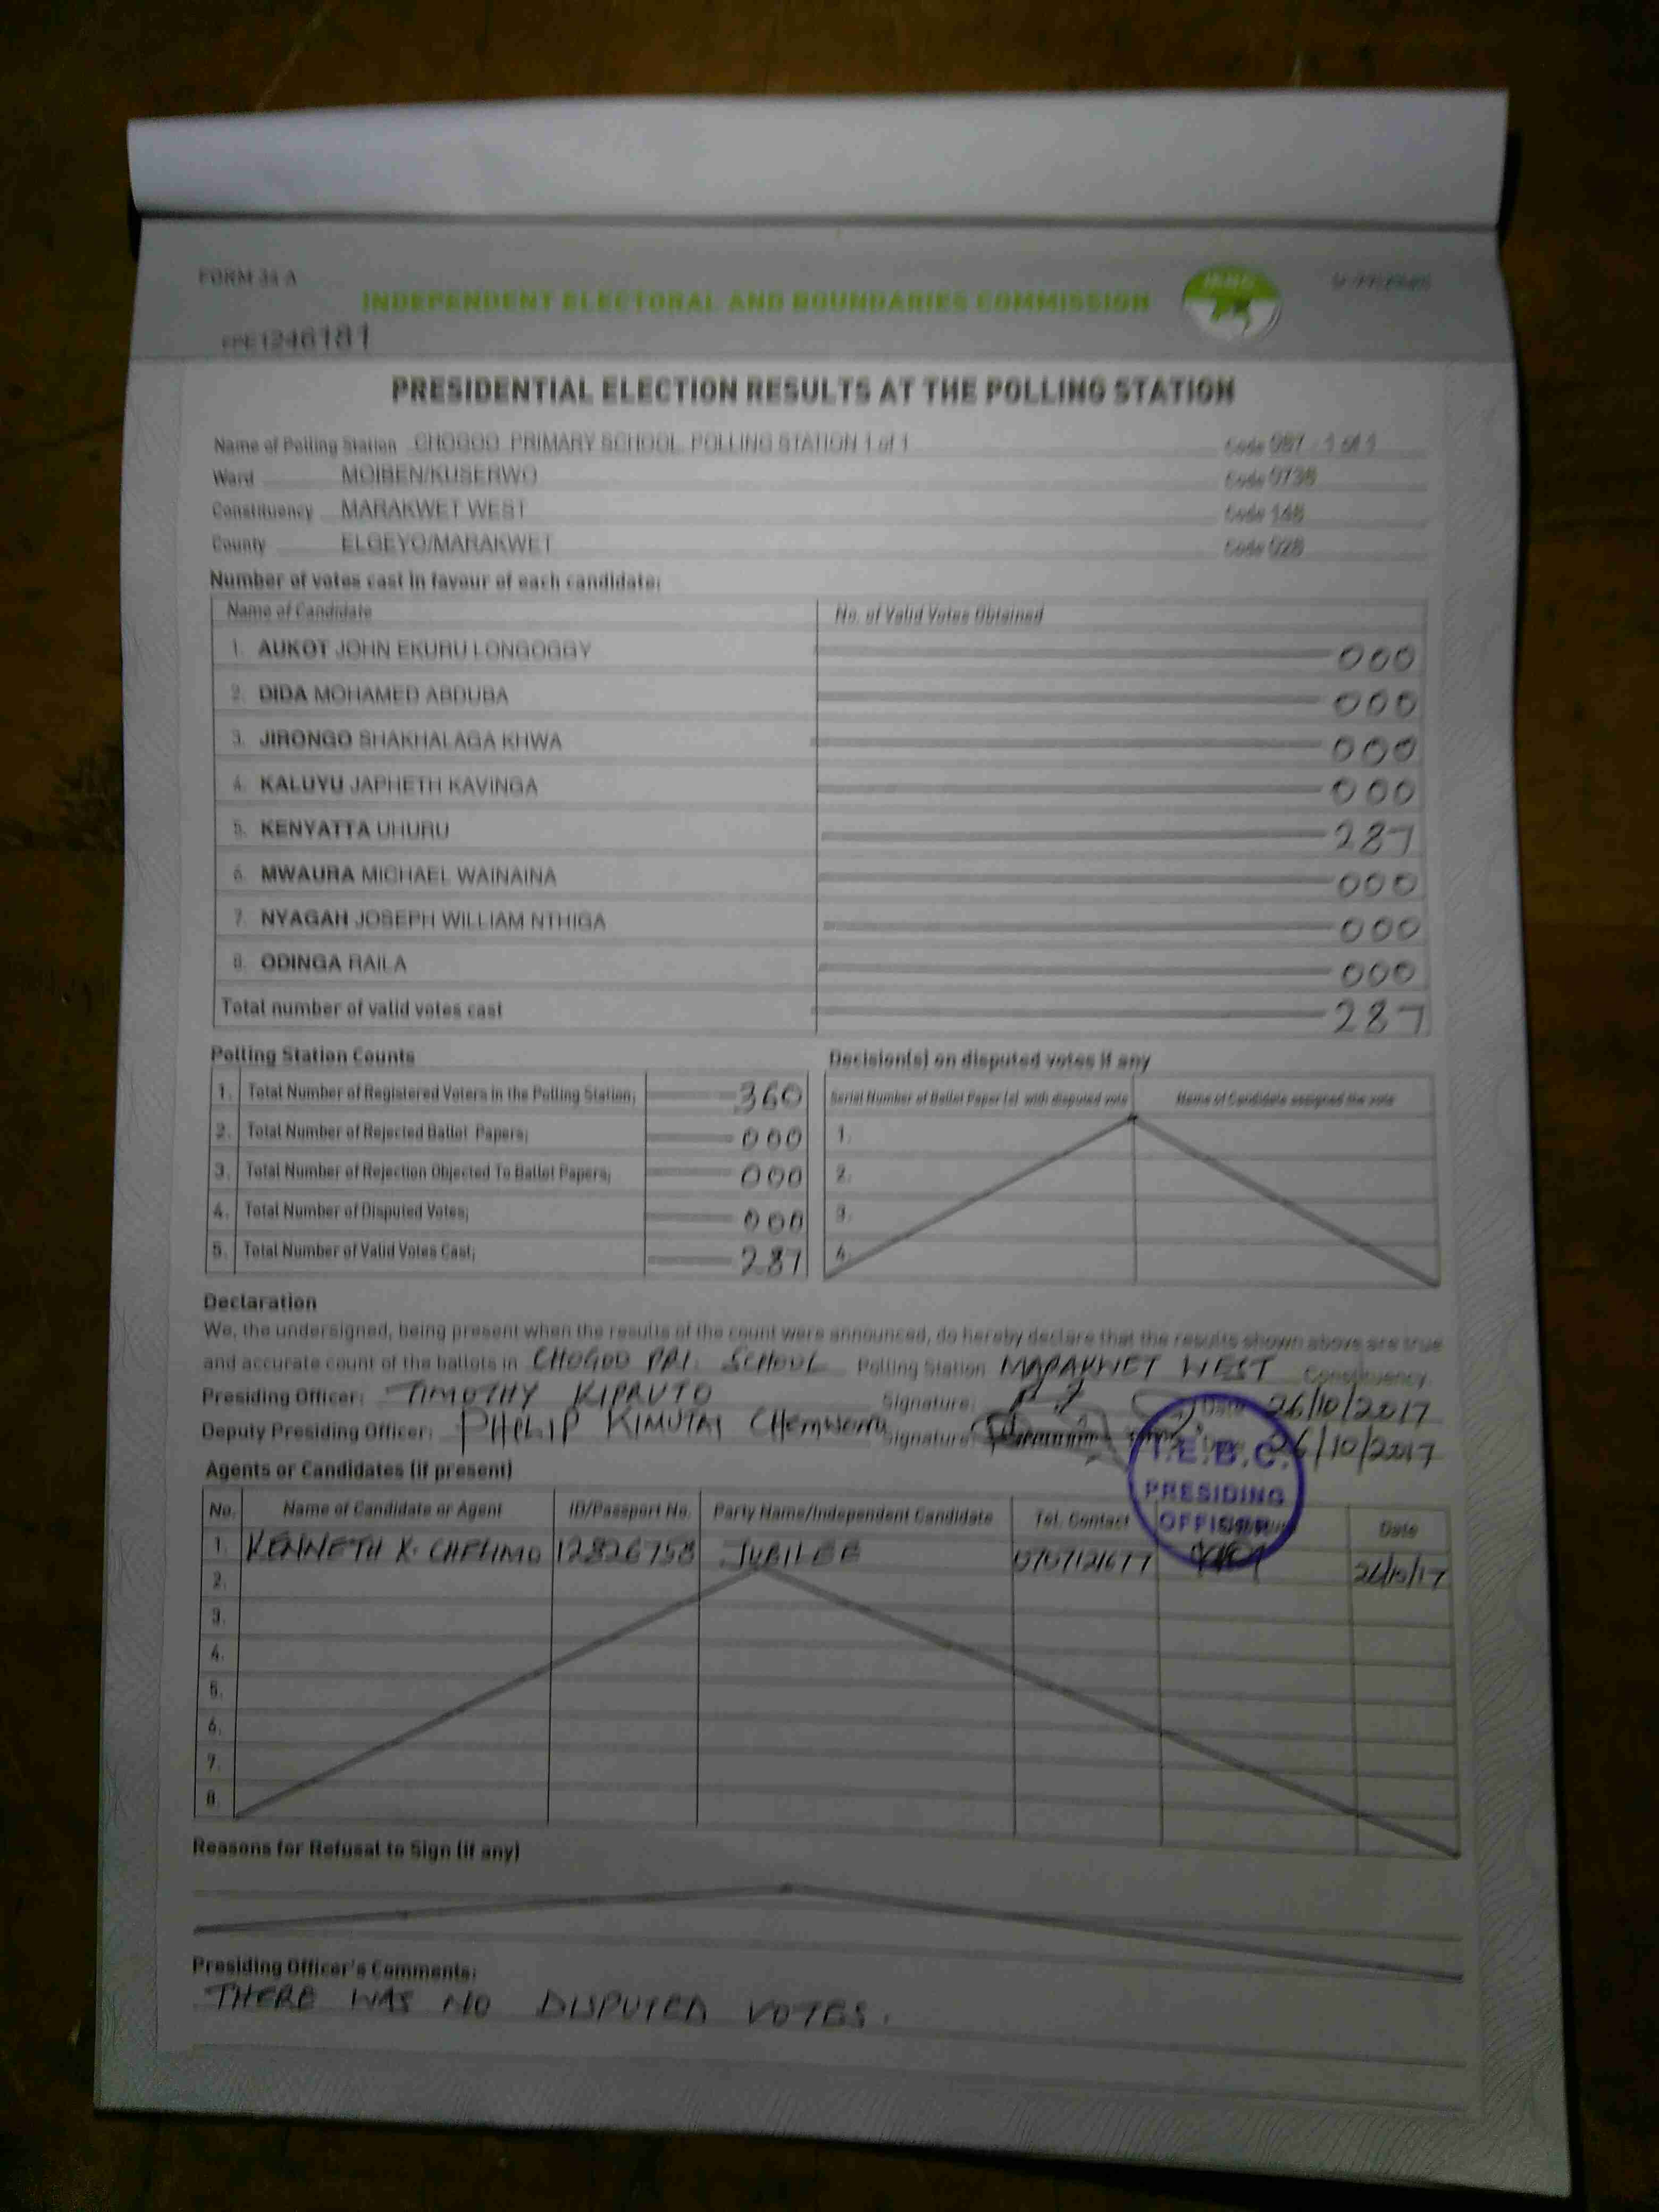 FORM 34 A
INDEPENDENT ELECTORAL AND BOUNDARIES COMMISSION
1246181
PRESIDENTIAL ELECTION RESULTS AT THE POLLING STATION
Name of Polling Station CHOGOO PRIMARY SCHOOL POLLING STATION 1 of 1 Code 087 - 1 of 1
Ward MOIBEN/KUSERWO Code 0736
Constituency MARAKWET WEST Code 148
County ELGEYO/MARAKWET Code 028
Number of votes cast in favour of each candidate:
Name of Candidate No. of Valid Votes Obtained
1. AUKOT JOHN EKURU LONGOGGY 000
2. DIDA MOHAMED ABDUBA 000
3. JIRONGO SHAKHALAGA KHWA 000
4. KALUYU JAPHETH KAVINGA 000
5. KENYATTA UHURU 287
6. MWAURA MICHAEL WAINAINA 000
7. NYAGAH JOSEPH WILLIAM NTHIGA 000
8. ODINGA RAILA 000
Total number of valid votes cast 287
Polling Station Counts Decision(s) on disputed votes if any
Serial Number of Ballot Paper (s) with disputed vote Name of Candidate assigned the vote
1. Total Number of Registered Voters in the Polling Station; 360
2. Total Number of Rejected Ballot Papers; 000 1.
3. Total Number of Rejection Objected To Ballot Papers; 000 2.
4. Total Number of Disputed Votes; 000 3.
5. Total Number of Valid Votes Cast; 287 4.
Declaration
We, the undersigned, being present when the results of the count were announced, do hereby declare that the results shown above are true
and accurate count of the ballots in CHOGOO PRI. SCHOOL Polling Station MARAKWET WEST Constituency
Presiding Officer: TIMOTHY KIPRUTO Signature: Date 26/10/2017
Deputy Presiding Officer: PHILIP KIMUTAI Signature: 26/10/2017
I.E.B.C.
PRESIDING
OFFICER
Agents or Candidates (if present)
No. Name of Candidate or Agent ID/Passport No. Party Name/Independent Candidate Tel. Contact Date
1. KENNETH K. 12826758 JUBILEE 0707121677 26/10/17
2.
3.
4.
5.
6.
7.
8.
Reasons for Refusal to Sign (if any)
Presiding Officer's Comments:
THERE WAS NO DISPUTED VOTES.